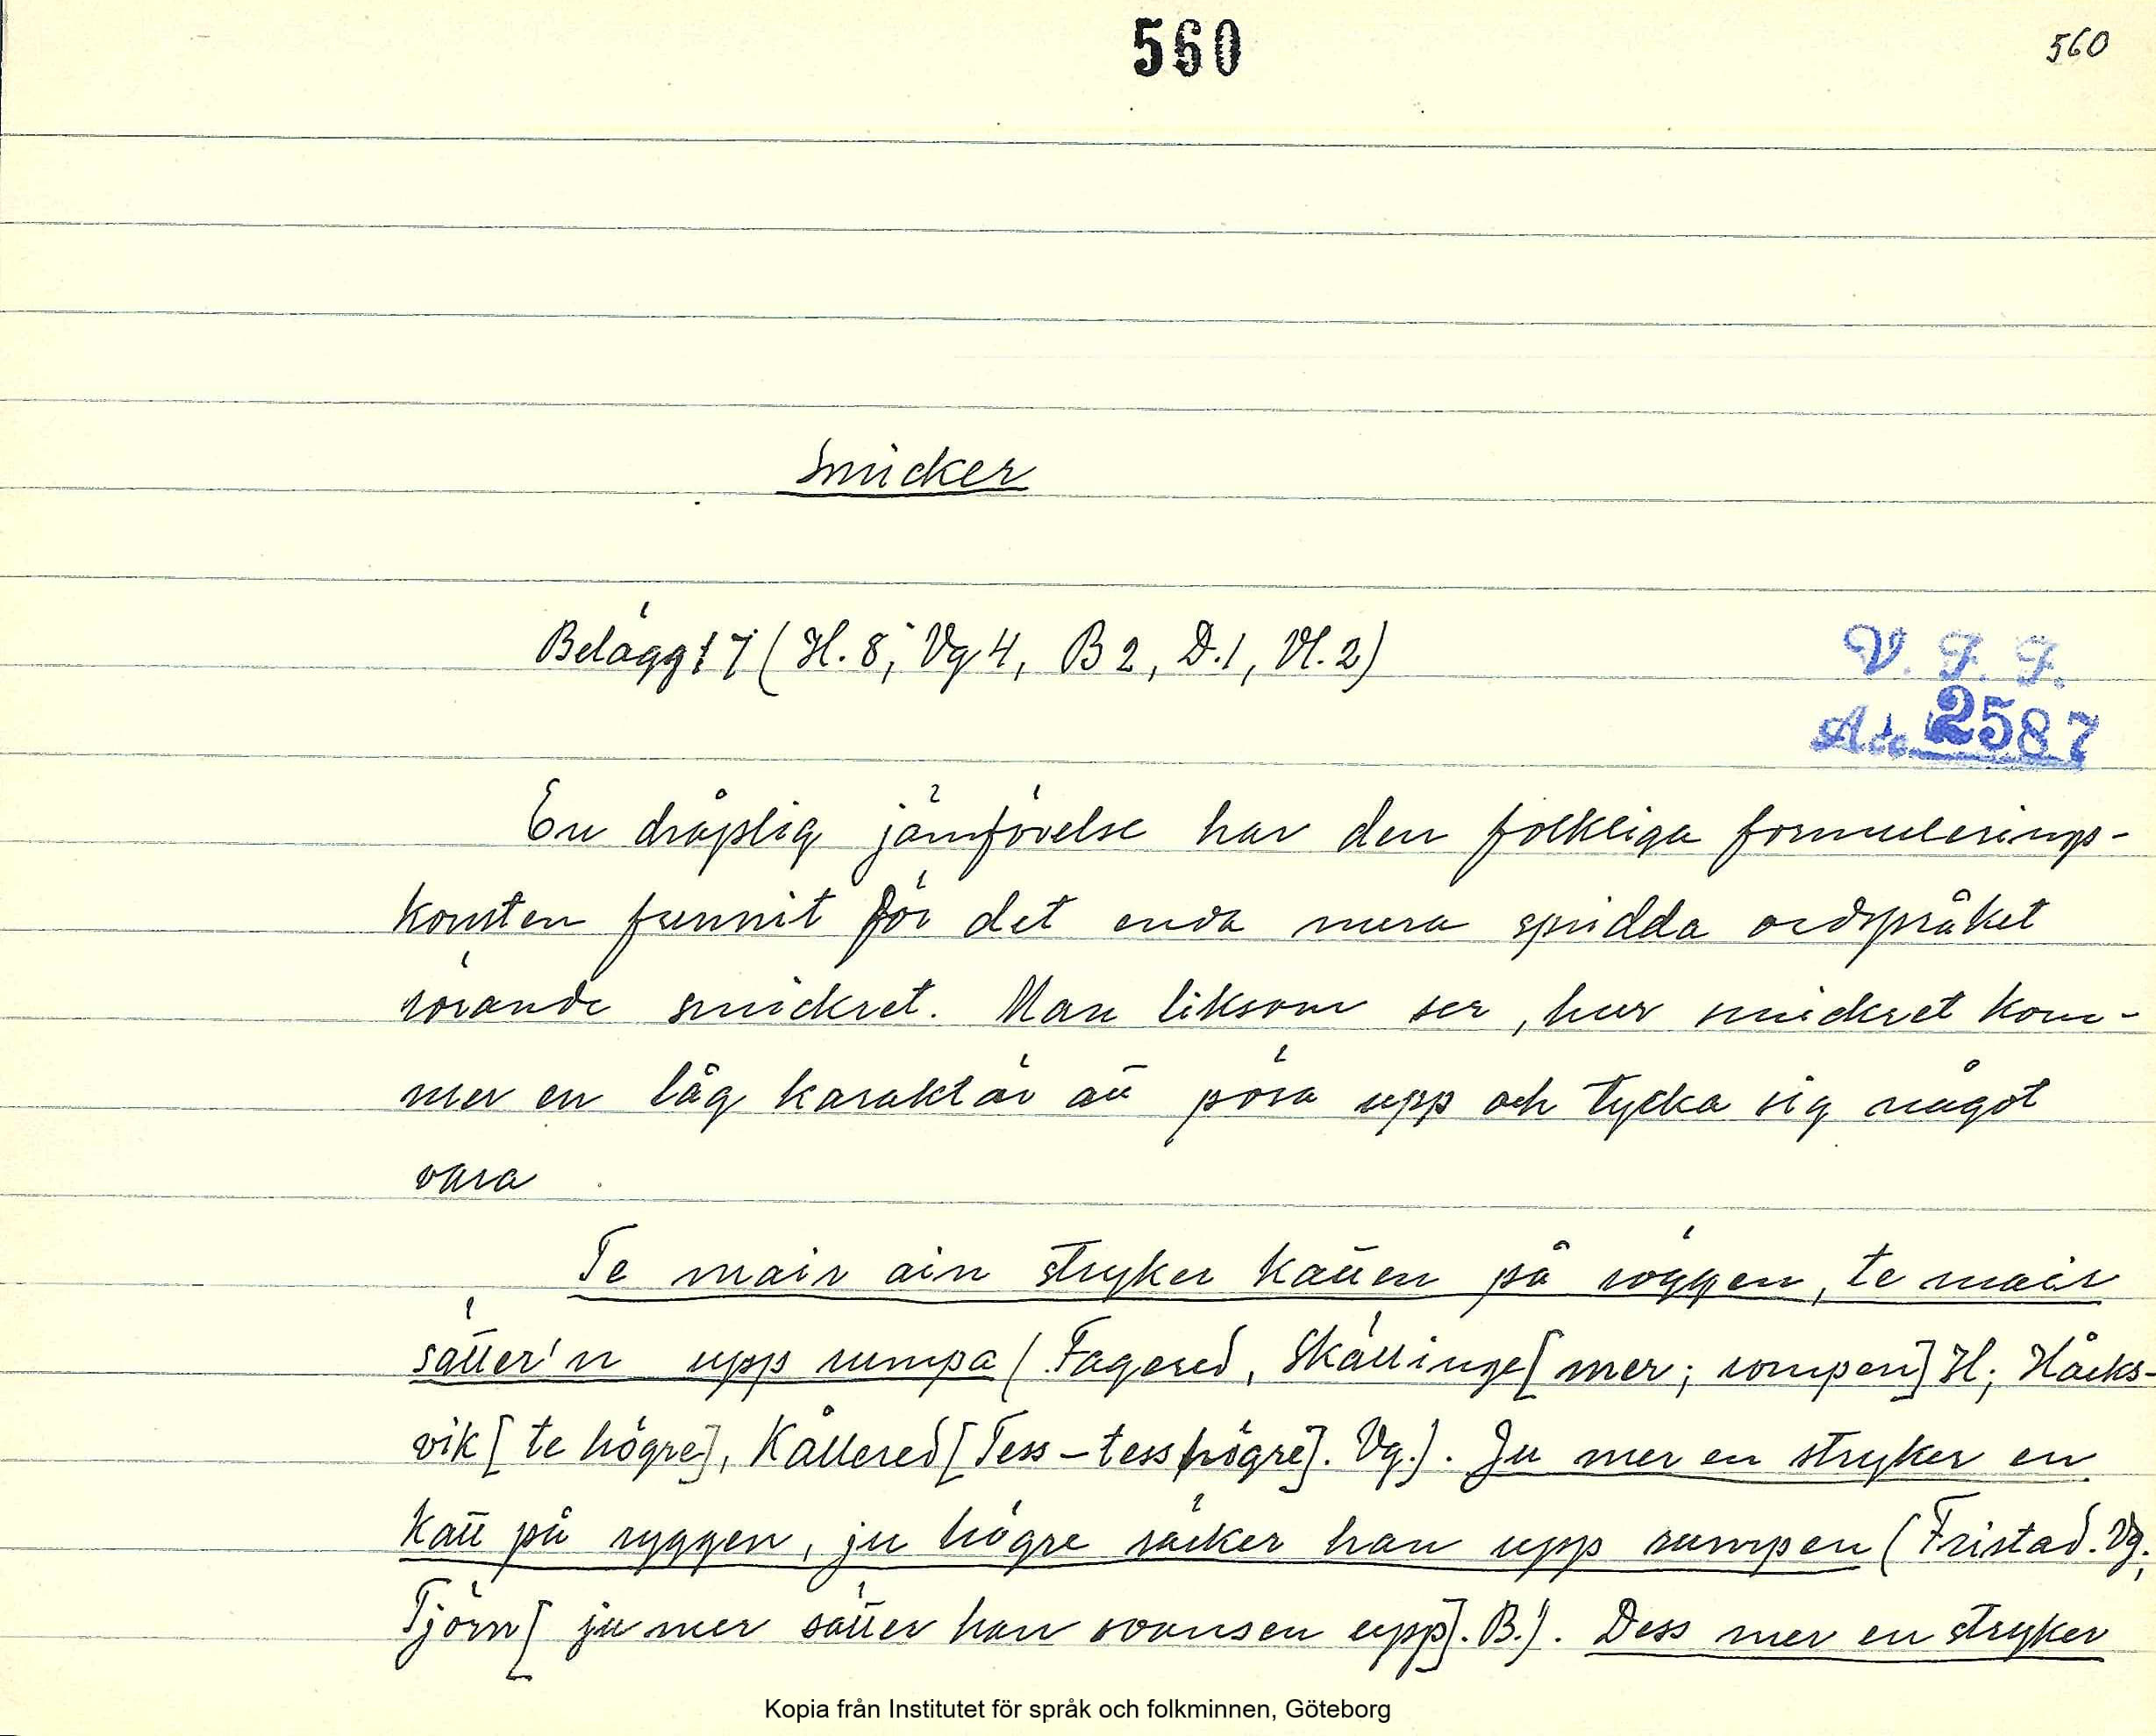 560
560
Smicker
Belägg 17 (H. 8, Vg 4, B 2, D. 1, Vl. 2)
V. F. F.
Acc. 2587
En dråplig jämförelse har den folkliga formulerings-
konsten funnit för det enda mera spridda ordspråket
rörande smickret. Man liksom ser, hur smickret kom-
mer en låg karaktär att pösa upp och tycka sig något
vara
Te mair ain stryker katten på röggen, te mair
sätter'n upp rumpa (Fagered, Skällinge [mer; rompen] H; Håcks-
vik [te högre], Kållered [Tess – tess högre]. Vg.). Ju mer en stryker en
katt på ryggen, ju högre säcker han upp rumpen (Fristad. Vg.,
Tjörn [ju mer sätter han svansen upp]. B.). Dess mer en stryker
Kopia från Institutet för språk och folkminnen, Göteborg